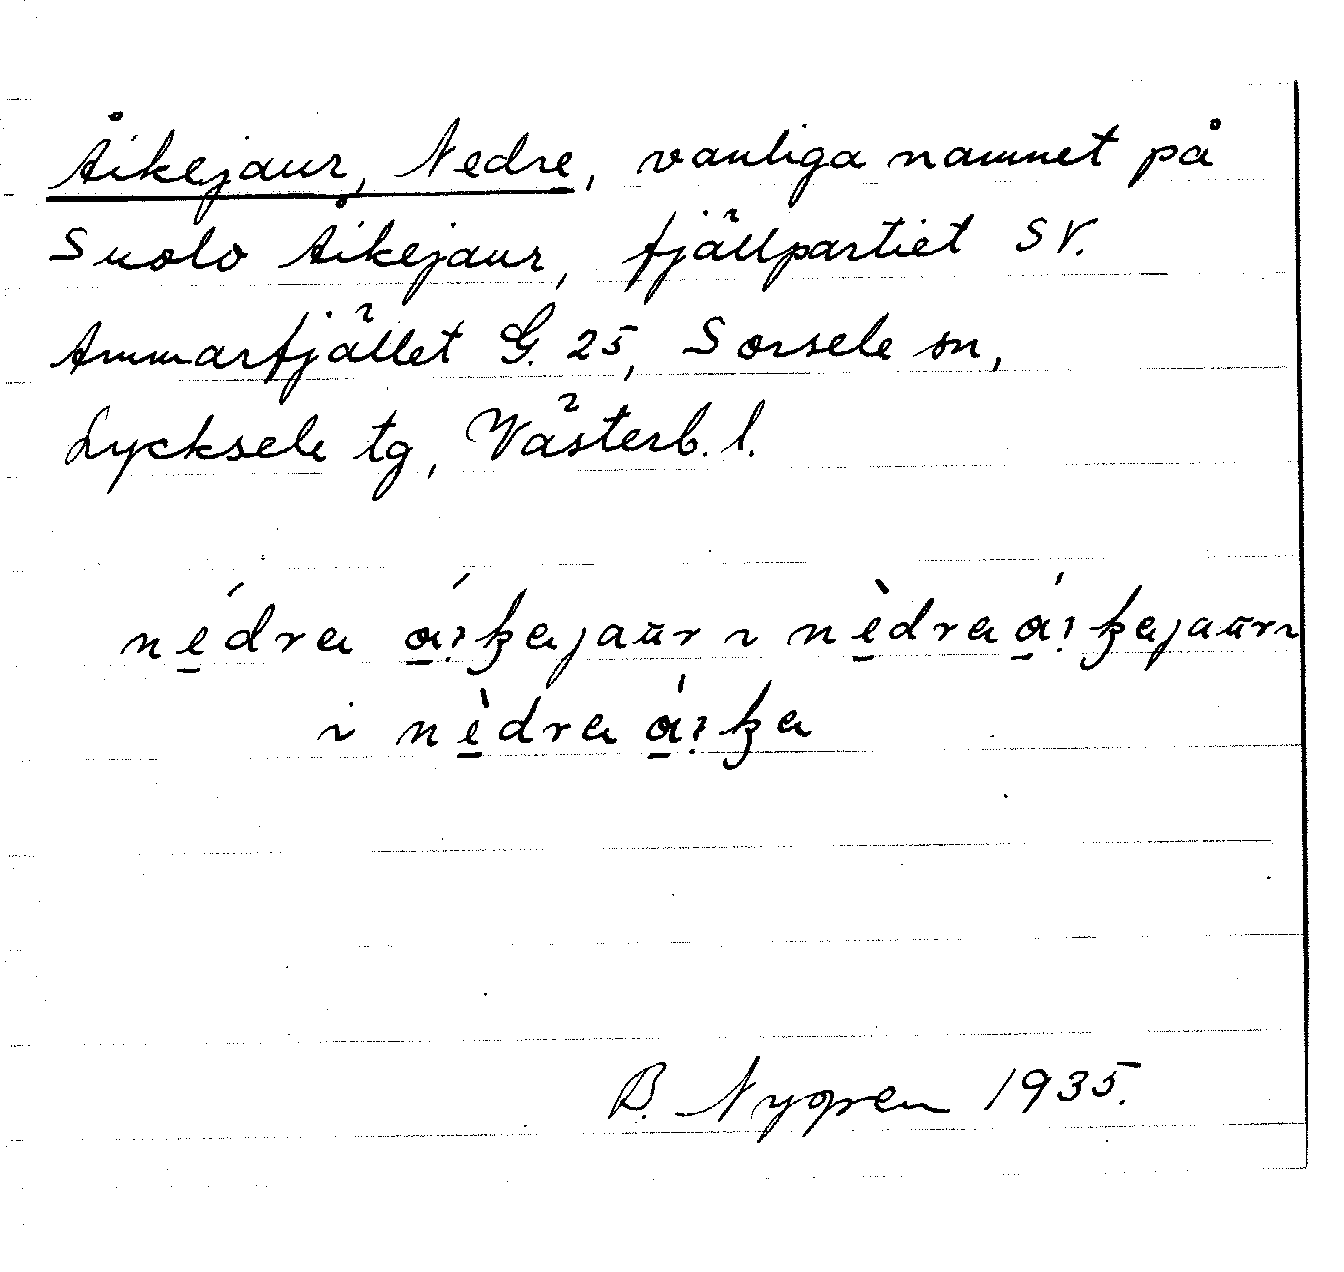 Åikejaur, Nedre, vanliga namnet på
Suolo Åikejaur, fjällpartiet SV.
Ammarfjället G. 25, Sorsele sn,
Lycksele tg, Västerb. l.
nédra ái̯kajaur ~ nèdraái̯kajaur ~
~ nèdraái̯ka
B. Nygren 1935.